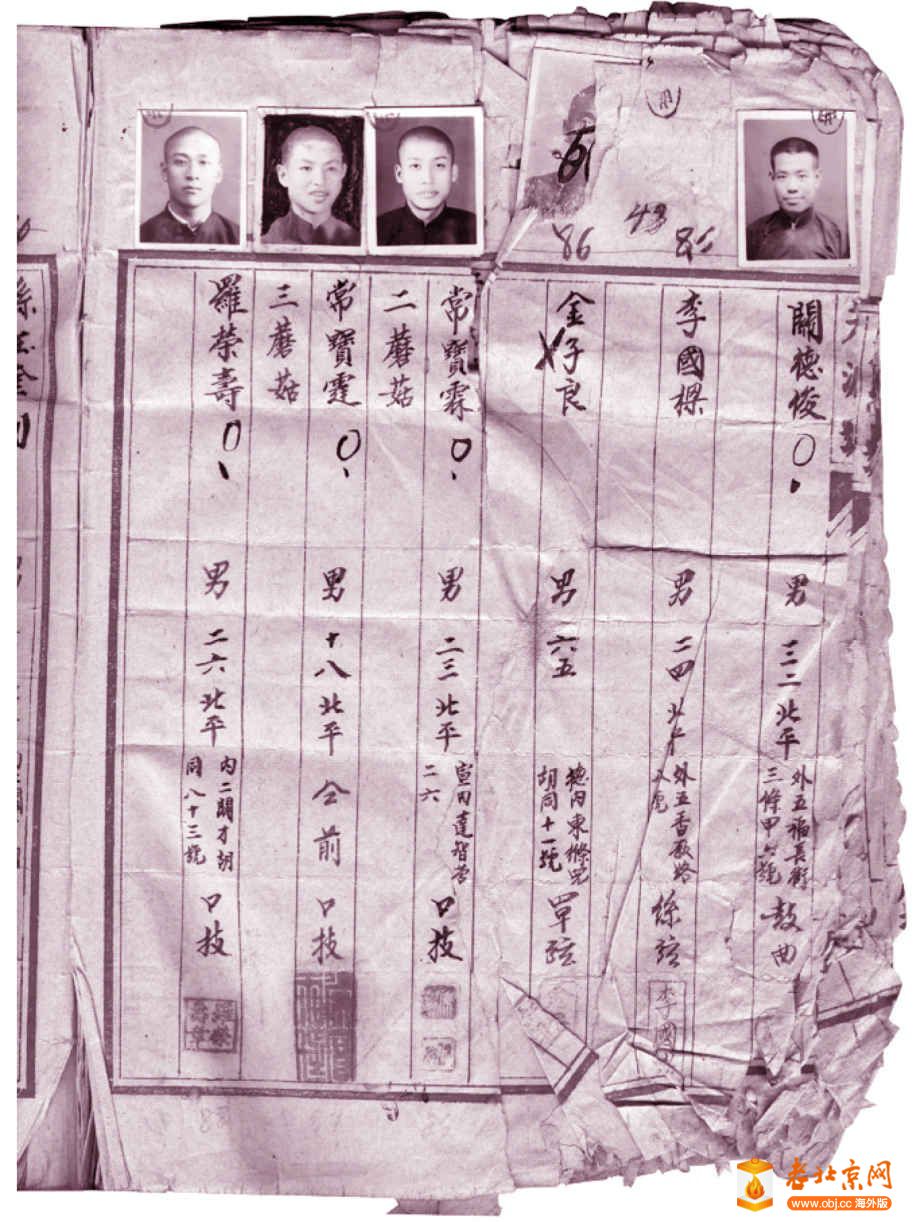 關德俊
男
三二
北平
外五福長街
三條甲六號
鼓曲
李國樑
男
二四
北平
外五香廠路
絲弦
李國
86
金子良
男
六五
德內東絛兒
胡同十一號
單弦
86
48
常寶霖
二蘑菇
男
二三
北平
宣內達智營
二六
口技
常寶霆
三蘑菇
男
十八
北平
仝前
口技
羅榮壽
男
二六
北平
內二闢才胡
同八十三號
口技
老北京网
www.obj.cc 海外版